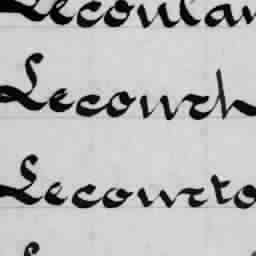 Lecoulan
Lecourch
Lecourto